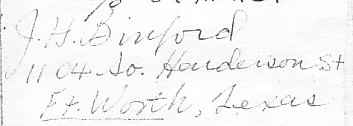 J. H. Binford
1104 So. Henderson St
Ft. Worth, Texas